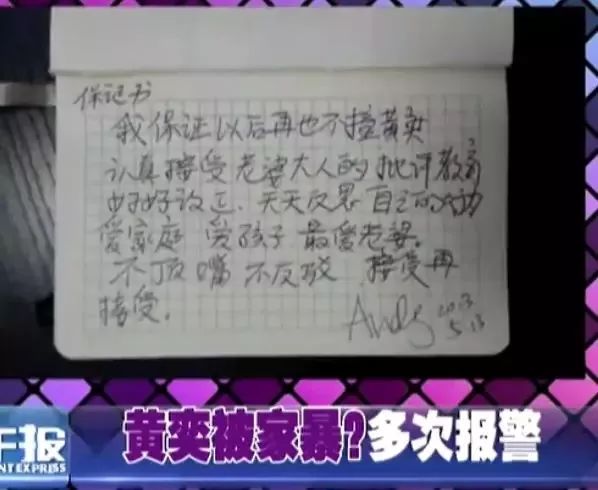 保证书
我保证以后再也不撞黄奕
认真接受老婆大人的批评教育
好好改正.天天反思自己的
爱家庭 爱孩子 最爱老婆.
不顶嘴 不反驳 接受再
接受.
Andy 2013
5.13
黄奕被家暴?多次报警
午报
NT EXPRESS